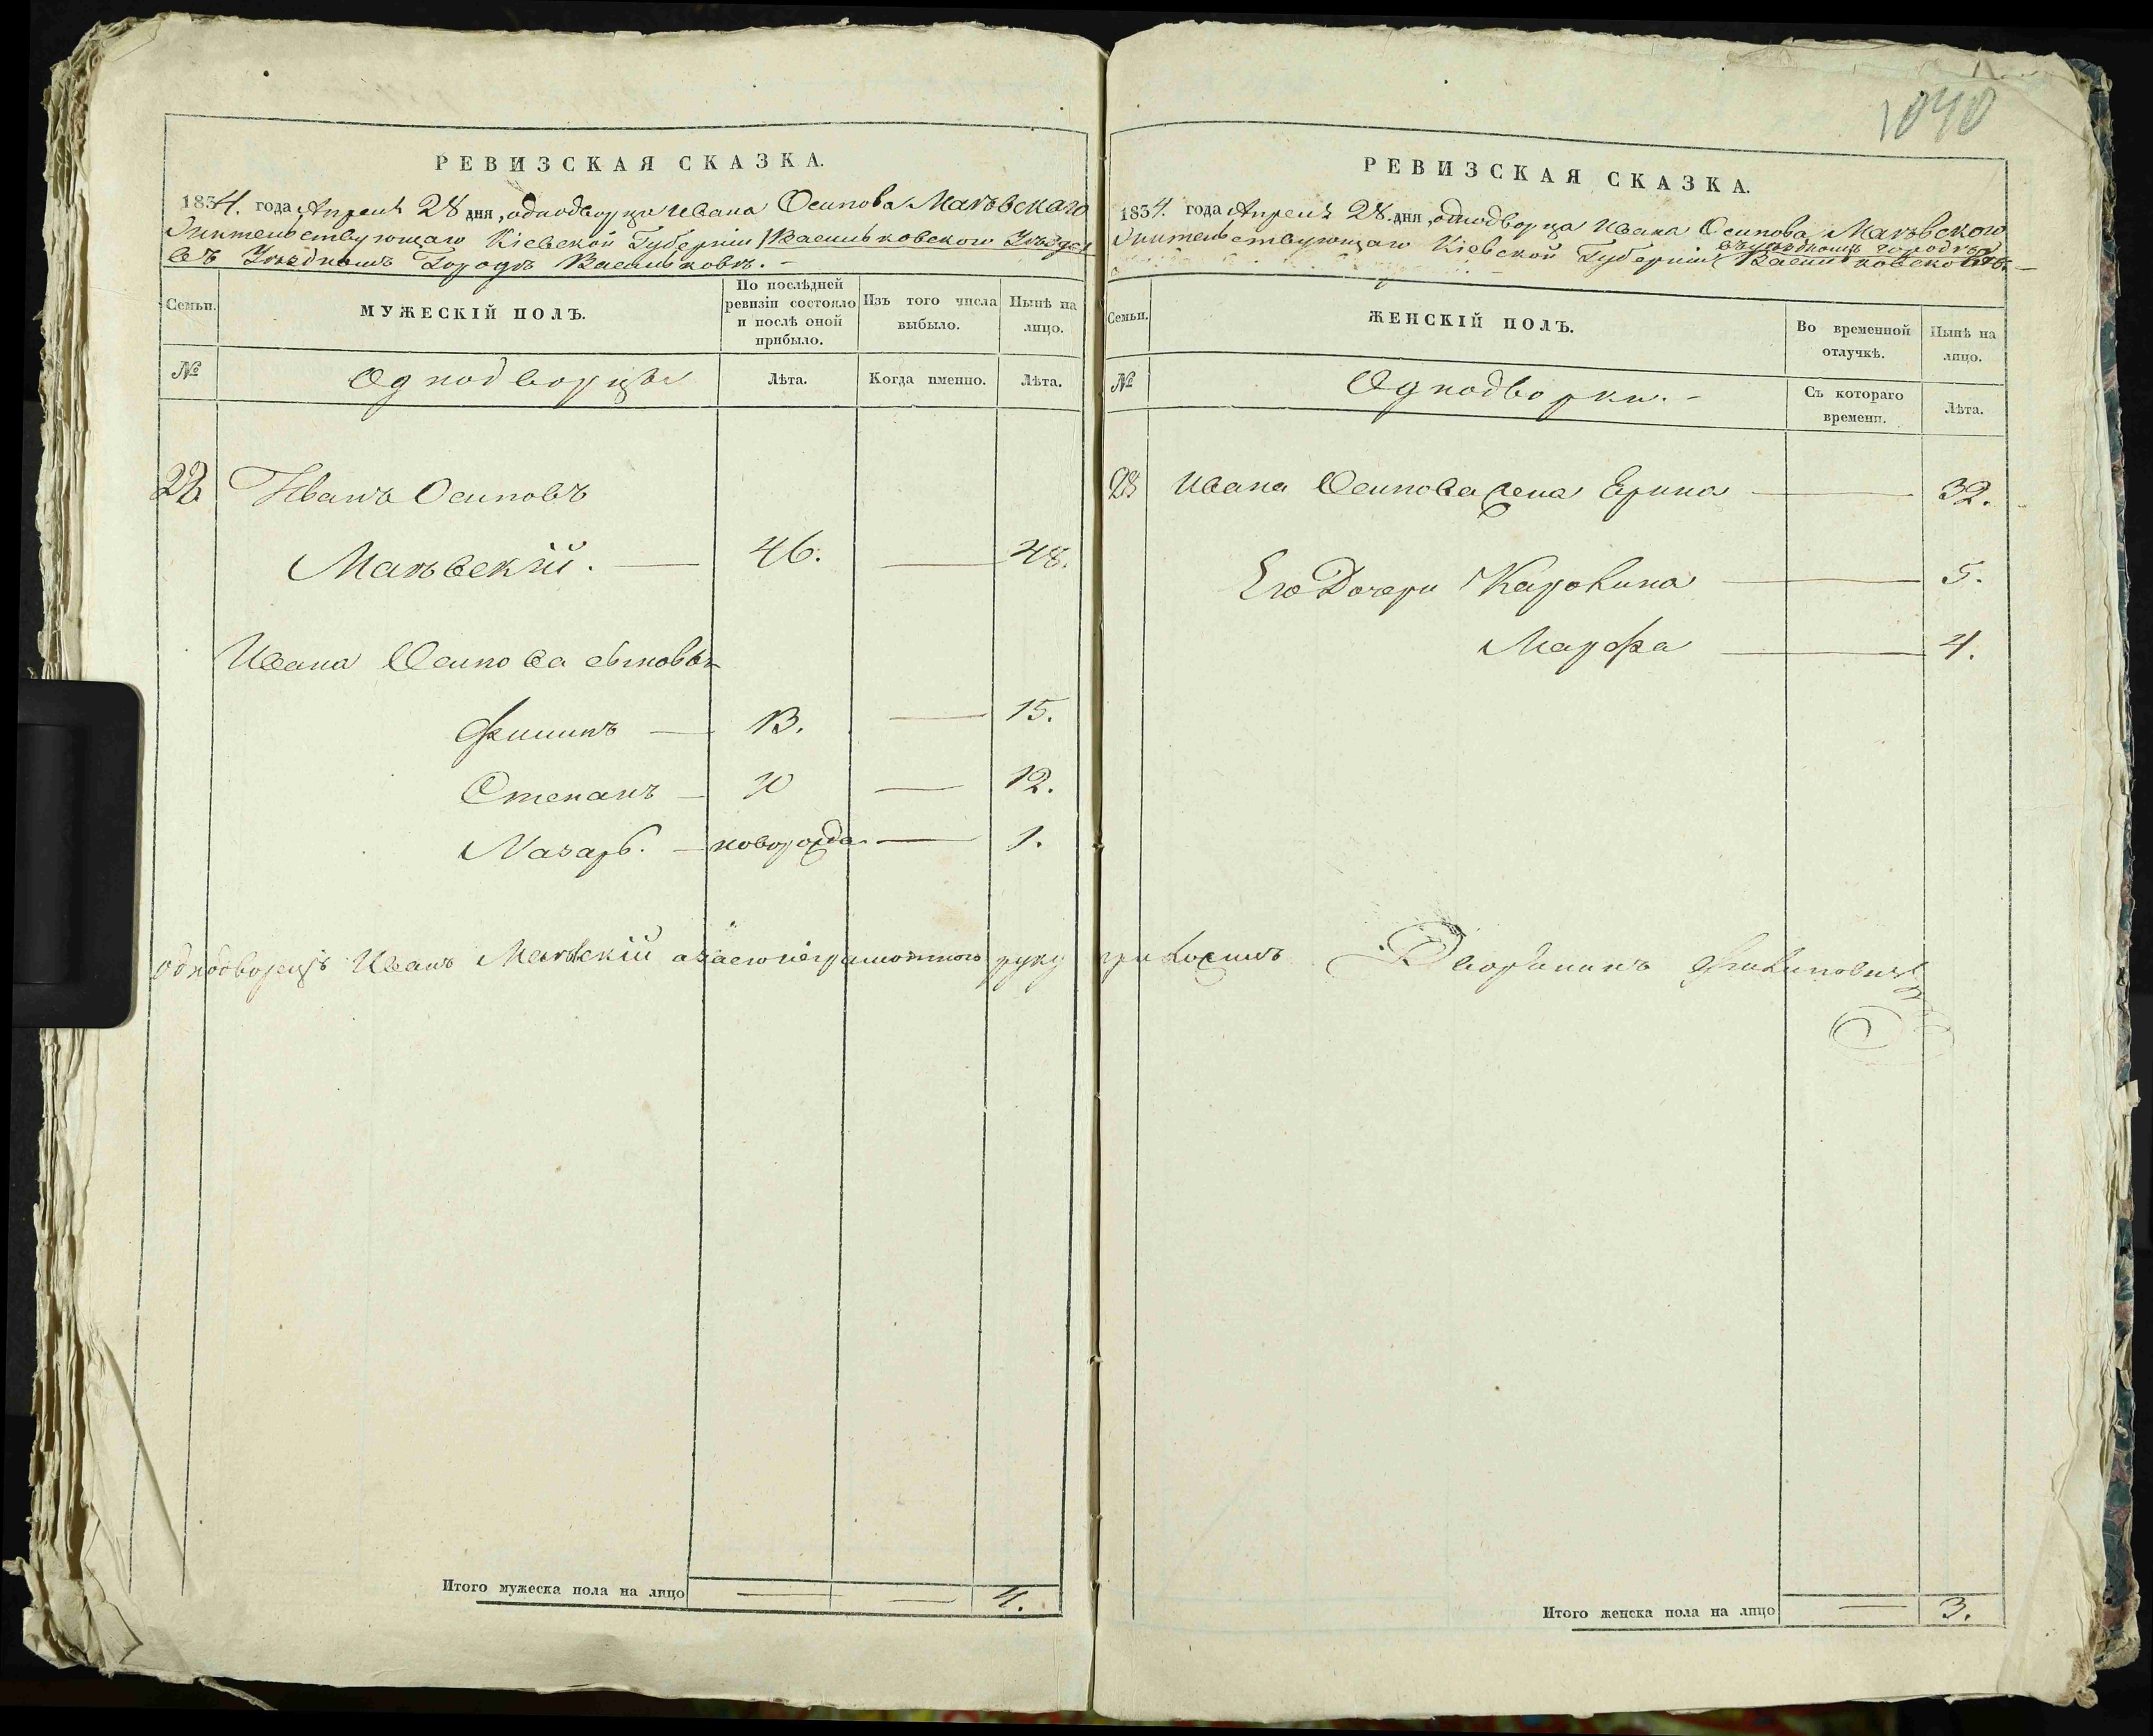 1040
РЕВИЗСКАЯ СКАЗКА.
1834. года Апреля 28 дня, однодворца Ивана Осипова Маковскаго
Жительствующаго Кіевской Губерніи Васильковскаго Уѣзда
въ Уѣздномъ Городѣ Васильковѣ. -
Семьи.
МУЖЕСКІЙ ПОЛЪ.
По послѣдней ревизіи состояло и послѣ оной прибыло.
Изъ того числа выбыло.
Нынѣ на лицо.
№
Однодворцы
Лѣта.
Когда именно.
Лѣта.
28 Иванъ Осиповъ
Маковскій. — 46. — 48.
Ивана Осипова сыновья
Филипъ — 13. — 15.
Степанъ — 10 — 12.
Назаръ. — новорожда. — 1.
однодворецъ Иванъ Маковскій азаего неграмотного руку приложилъ Дворянинъ
Итого мужеска пола на лицо — — 4.
РЕВИЗСКАЯ СКАЗКА.
1834. года Апреля 28. дня, однодворца Ивана Осипова Маковского
Жительствующаго Кіевской Губерніи въ уѣздномъ городѣ
Семьи.
ЖЕНСКІЙ ПОЛЪ.
Во временной отлучкѣ.
Нынѣ на лицо.
№
Однодворки. -
Съ котораго времени.
Лѣта.
28 Ивана Осипова жена Ерина — 32.
Его Дочери Каролина — 5.
Марфа — 4.
Итого женска пола на лицо — 3.